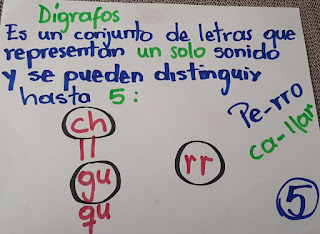 Dígrafos
Es un conjunto de letras que
representan un solo sonido
y se pueden distinguir
hasta 5:
ch
ll
gu
qu
rr
Pe-rro
ca-llar
5